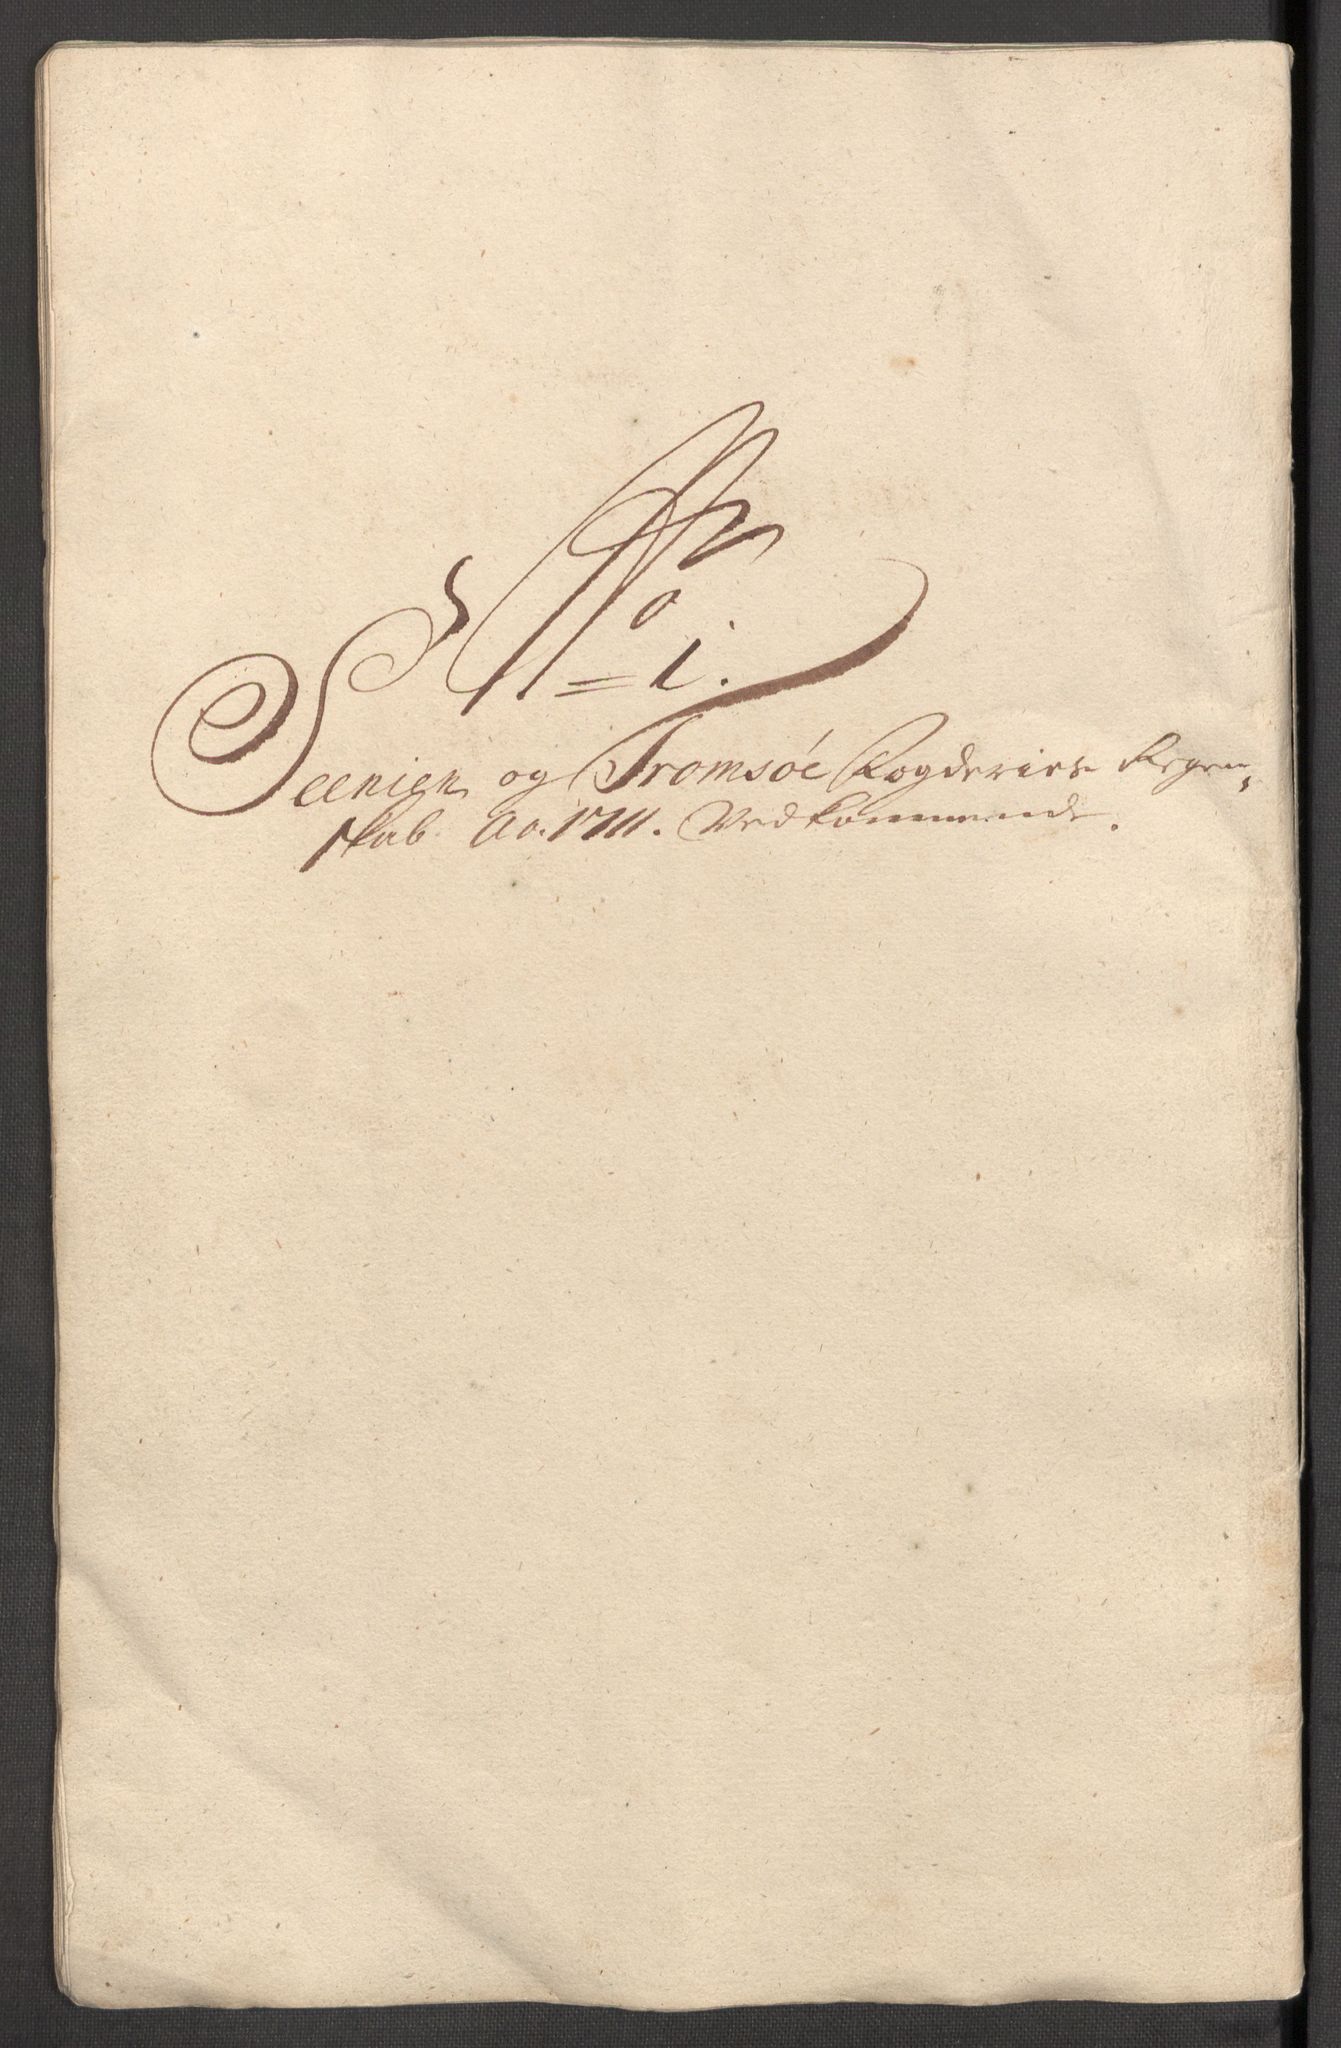 No
1.
Seenien og Tromsöe Fogderies Regen-
skab Ao. 1711. Vedkommende.